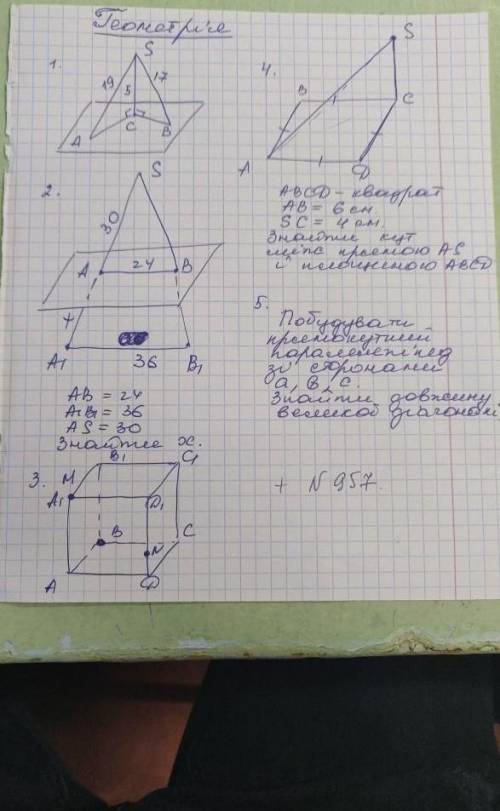 Геометрія
1.
S
19
5
17
A
C
B
2.
S
30
A
24
B
x
A1
36
B1
AB = 24
A1B1 = 36
AS = 30
Знайти x.
3.
M
B1
C1
A1
D1
B
C
N
A
D
4.
S
B
C
A
D
ABCD - квадрат
AB = 6 см
SC = 4 см.
Знайти кут
між прямою AS
і площиною ABCD
5.
Побудувати
прямокутний
паралелепіпед
зі сторонами
a, b, c.
Знайти довжину
великої діагоналі
+ N 957.